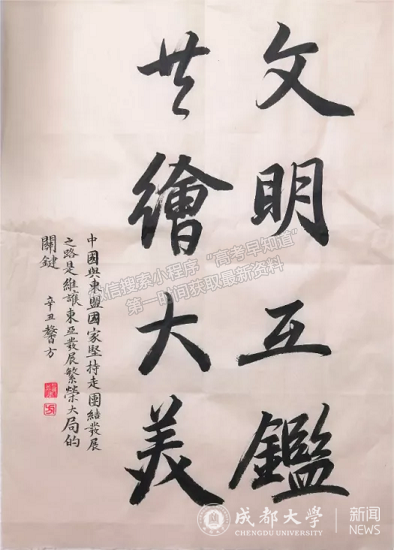 文明互鑑
共繪大美
中國與東盟國家堅持走團結發展
之路是維護東亞發展繁榮大局的
關鍵
辛丑 馨方
微信搜索小程序“高考早知道”
第一时间获取最新资料
成都大学
CHENGDU UNIVERSITY
新闻
NEWS